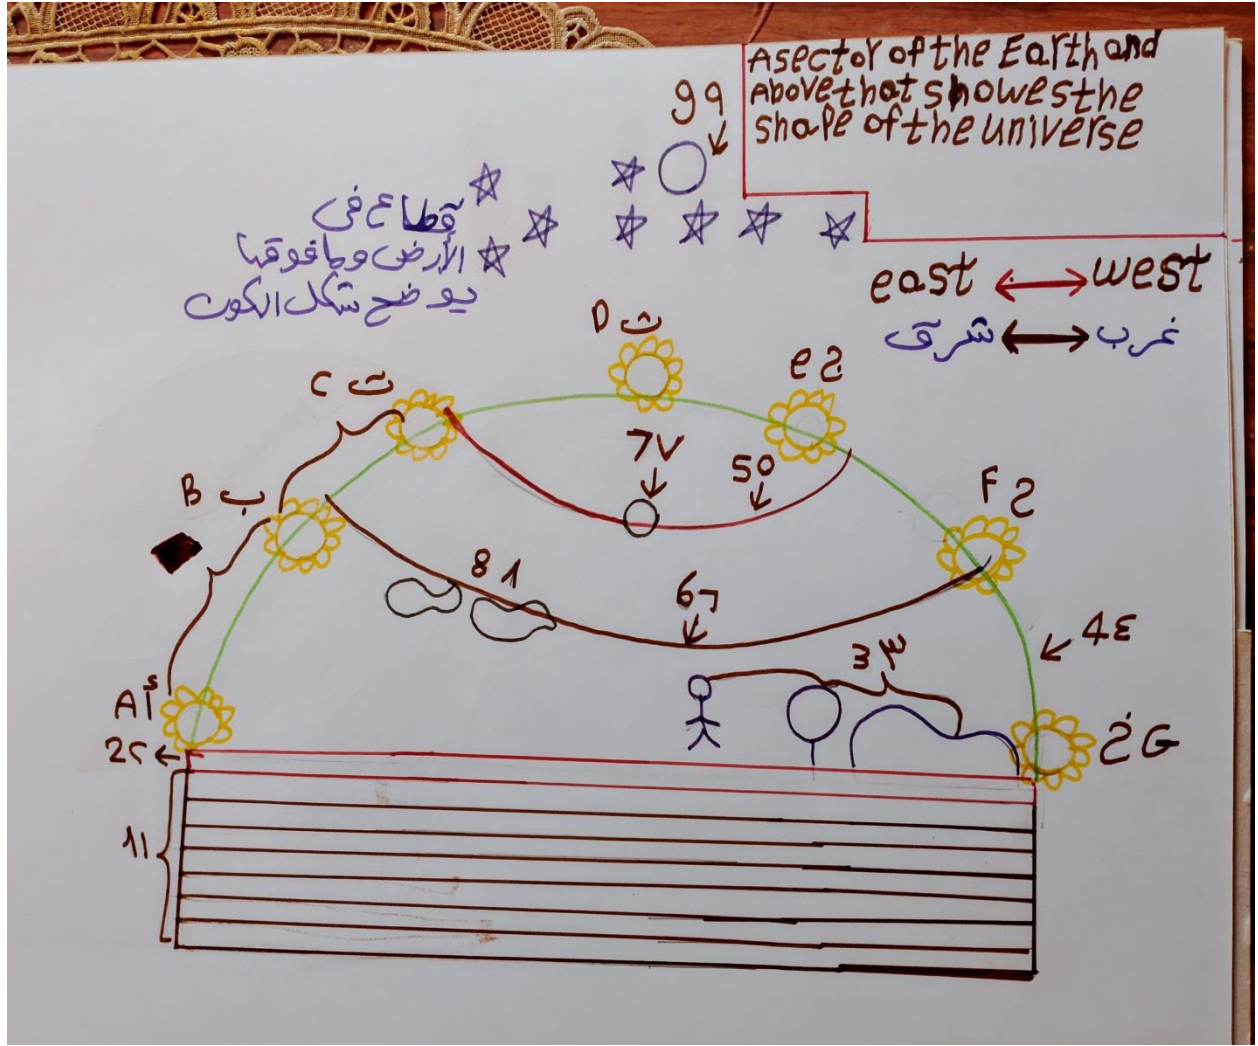 Asector of the Earth and
Above that showes the
shape of the universe
9 ٩
قطاع فى
الأرض وما فوقها
يوضح شكل الكون
east west
شرق غرب
D ث
e ج
C ت
7 ٧
5 ٥
B ب
F ح
8 ٨
6 ٦
4 ٤
3 ٣
A أ
G خ
2 ٢
1 ١